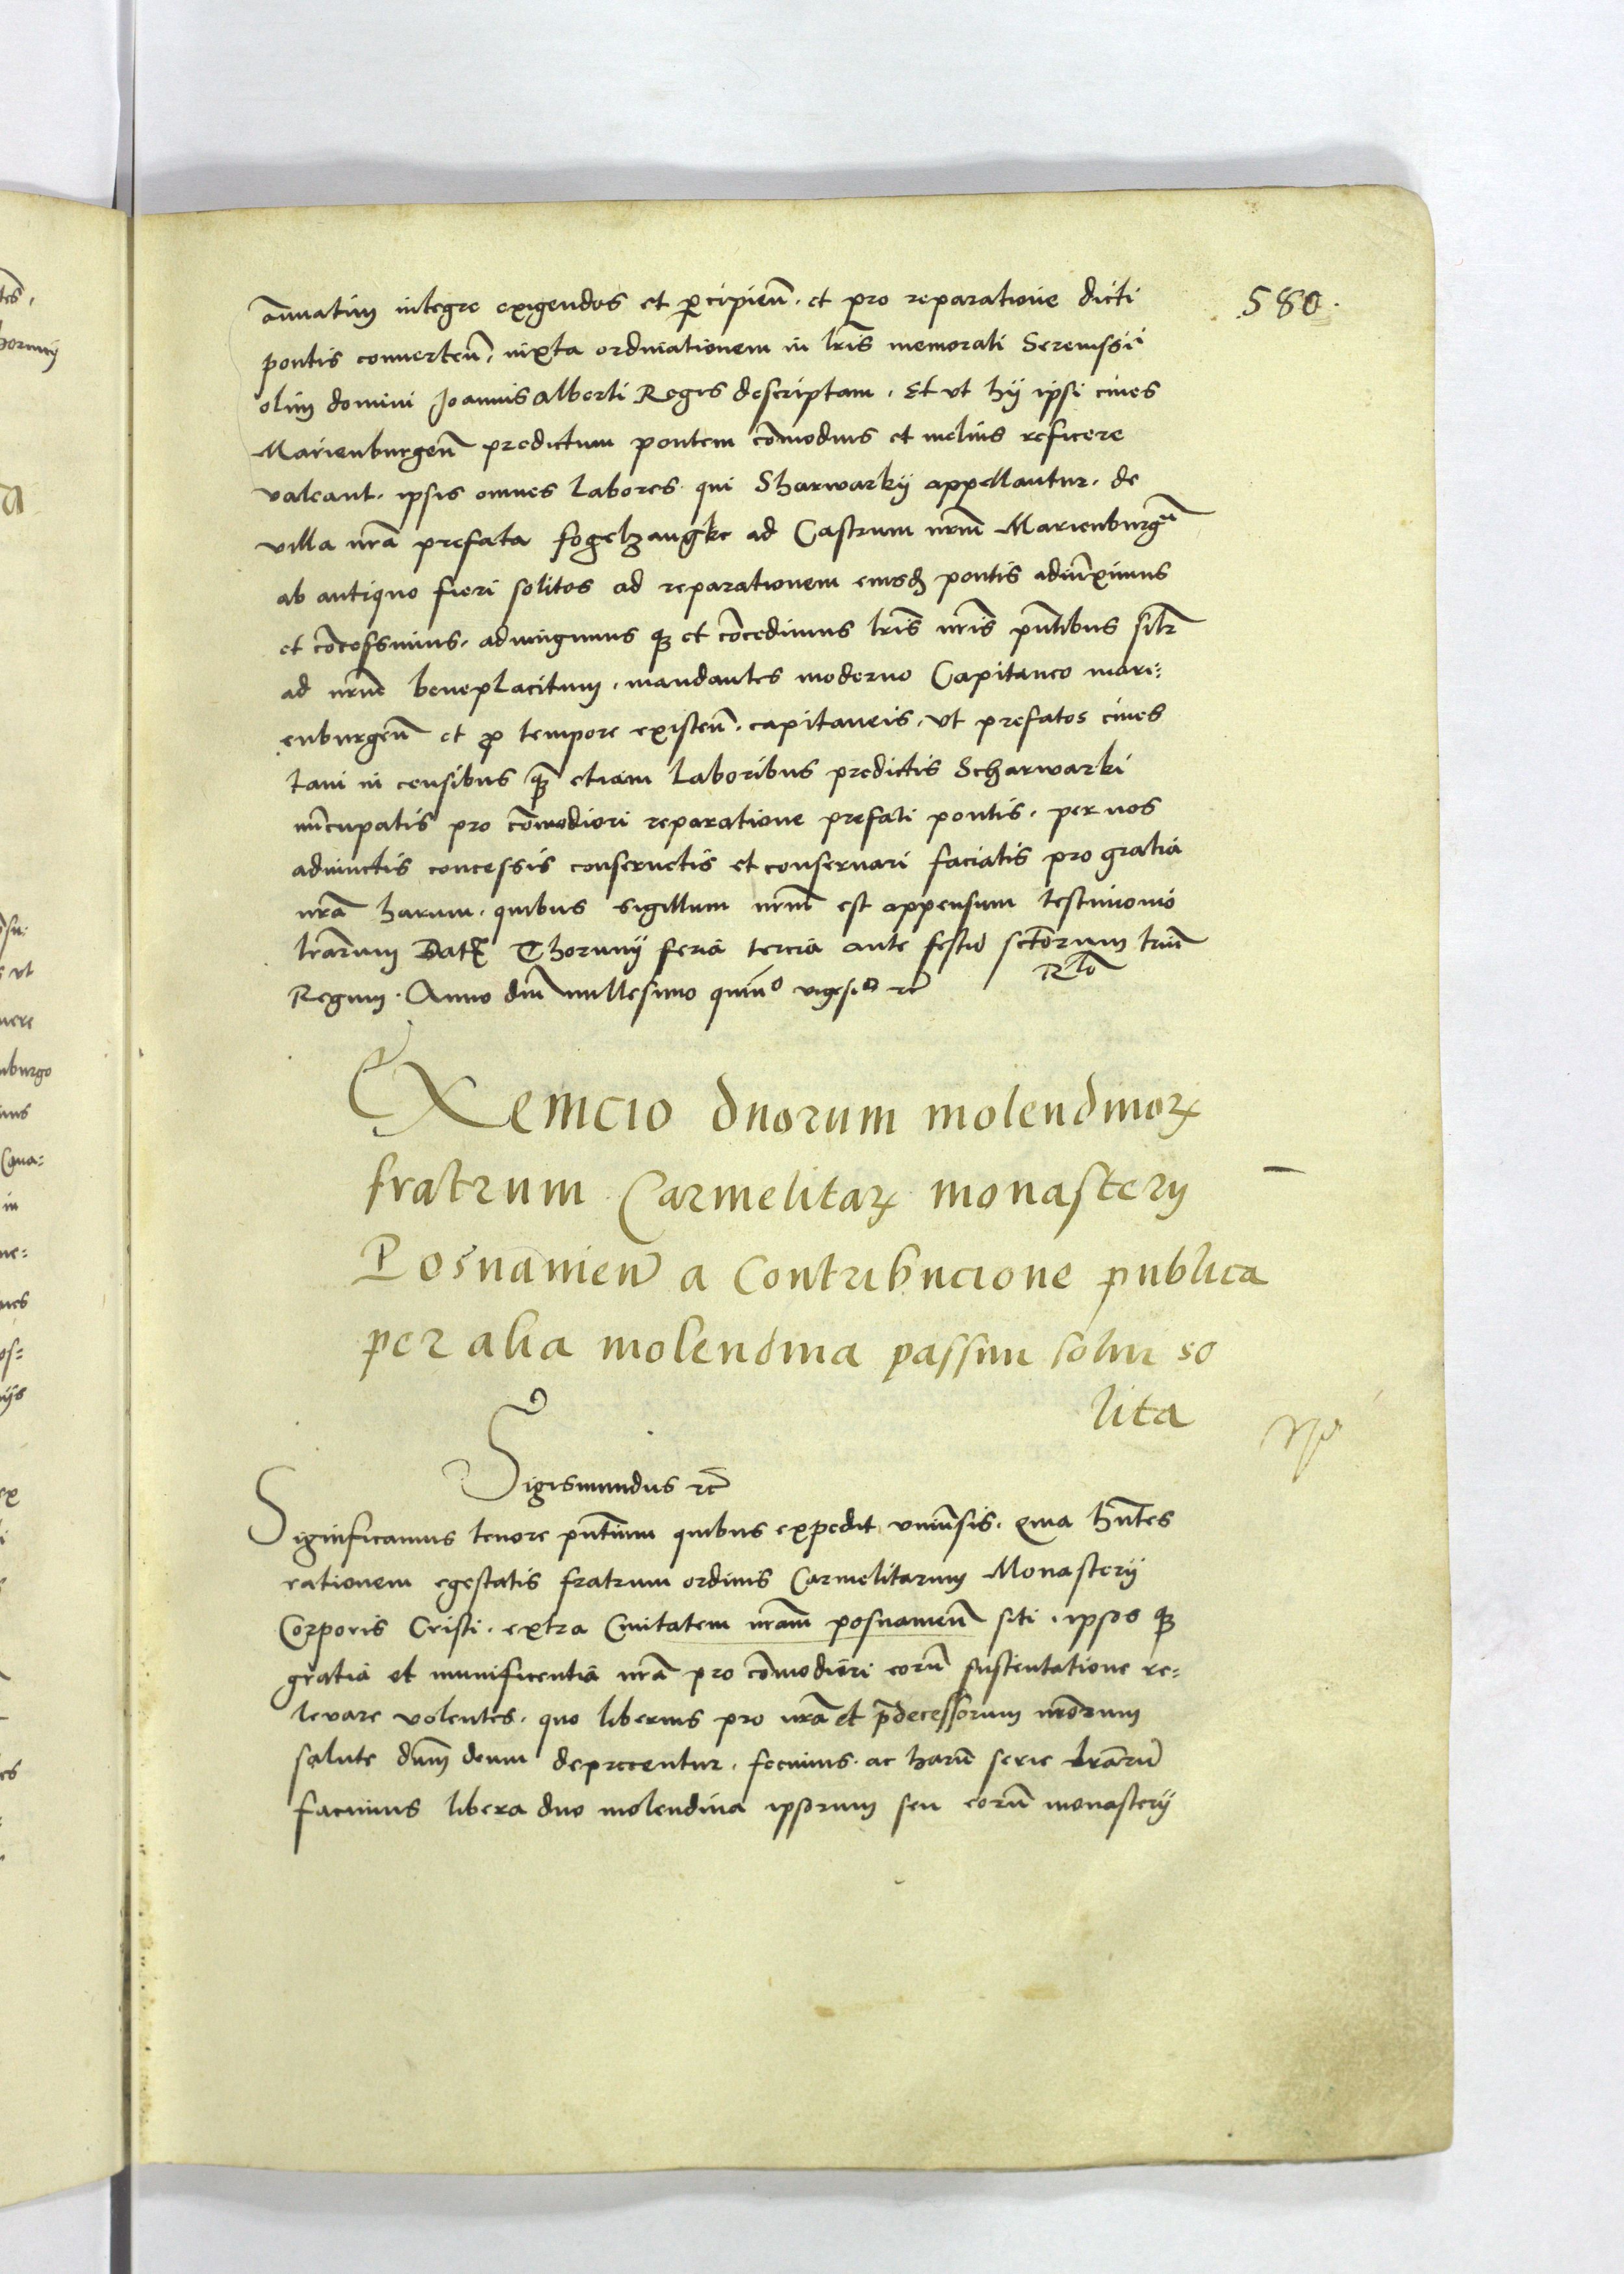 580.
annuatim integre exigendos et ꝑcipieñ. et pro reparatione dicti
pontis conuerteñ, iuxta ordinationem in lr̃is memorati Sereniss̃i
olim domini Joannis Alberti Regis descriptam. Et vt hij ipsi ciues
Marienburgeñ predictum pontem com̃odius et melius reficere
valeant. ipsis omnes labores qui Sharwarkij appellantur. de
villa nr̃a prefata fogelzangke ad Castrum nr̃m Marienburgeñ
ab antiquo fieri solitos ad reparationem eiusd̃ pontis adiũximus
et cõcessimus. adiungimus qꝫ et cõcedimus lr̃is nr̃is pñtibus silr̃
ad nr̃um beneplacitum. mandantes moderno Capitaneo mari=
enburgeñ et ꝓ tempore existeñ. capitaneis. vt prefatos ciues
tam in censibus qꝫ etiam laboribus predictis Scharwarki
nũcupatis pro com̃odiori reparatione prefati pontis. per nos
adiunctis concessis conseruetis et conseruari faciatis pro gratia
nr̃a harum. quibus sigillum nr̃m est appensum testimonio
lr̃arum Datꝭ Thorunij feria tercia ante festũ sctõrum triũ
Regum. Anno dñi millesimo quin͂o vigesio ꝛc̃ Rlo
Exemcio duorum molendinoꝝ
fratrum Carmelitaꝝ monasterij
Posnanieñ a Contribucione publica
per alia molendina passim solui so
lita
Sigismundus ꝛc̃
Significamus tenore pñtium quibus expedit vniũsis. Quia hñtes
rationem egestatis fratrum ordinis Carmelitarum Monasterij
Corporis Cristi. extra Ciuitatem nr̃am posnanieñ siti. ipsos qꝫ
gratia et munificentia nr̃a pro com̃odiori eorũ sustentatione re=
leuare volentes. quo liberius pro nr̃a et p̃decessorum nr̃orum
salute dñm deum deprecentur. fecimus. ac harũ serie lr̃arũ
facimus libera duo molendina ipsorum seu eorũ monasterij